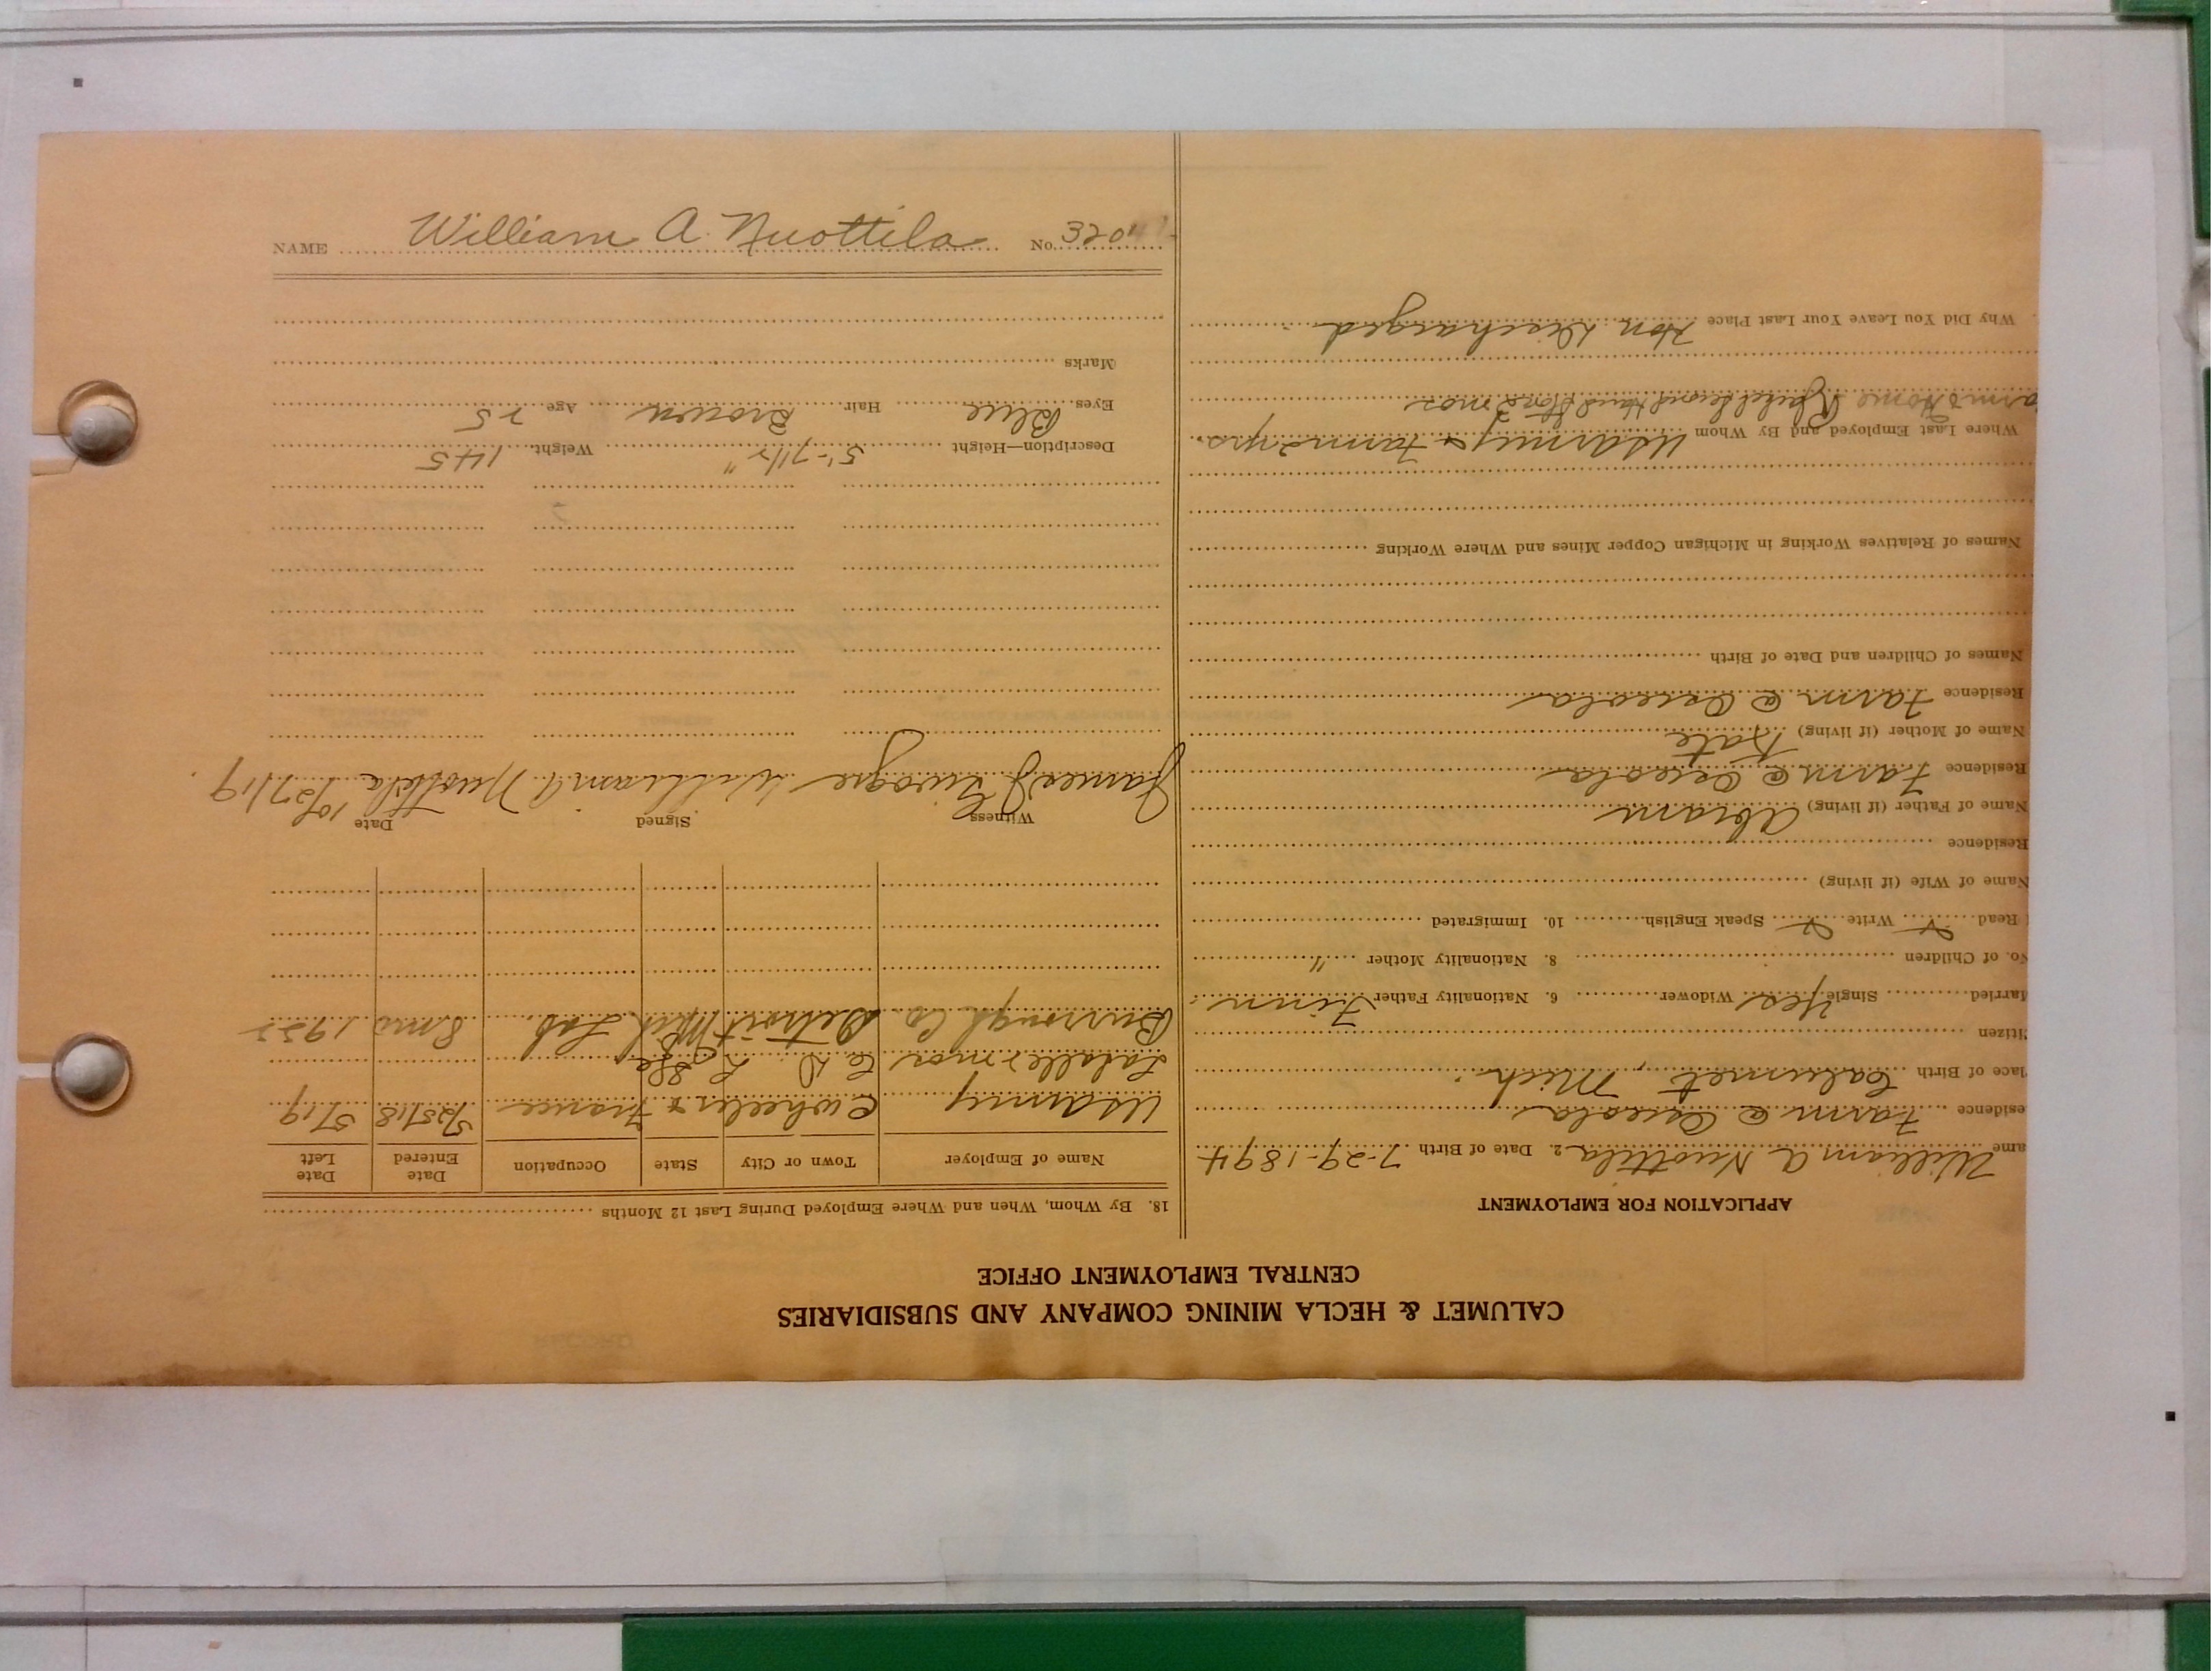 CALUMET & HECLA MINING COMPANY AND SUBSIDIARIES
CENTRAL EMPLOYMENT OFFICE
APPLICATION FOR EMPLOYMENT
ame William A Nuottila 2. Date of Birth 7-29-1894
esidence Farm @ Osceola
lace of Birth Calumet, Mich.
itizen
arried Single Yes Widower 6. Nationality Father Finn
No. of Children 8. Nationality Mother "
Read Write Speak English 10. Immigrated
Name of Wife (if living)
Residence
Name of Father (if living) Abram
Residence Farm @ Osceola
Name of Mother (if living) Kate
Residence Farm @ Osceola
Names of Children and Date of Birth
Names of Relatives Working in Michigan Copper Mines and Where Working
Where Last Employed and By Whom US Army & Farm 2 yrs.
Home Second Hand 2 mos
Why Did You Leave Your Last Place Hon Discharged
18. By Whom, When and Where Employed During Last 12 Months
Name of Employer Town or City State Occupation Date Entered Date Left
US Army France 5/25/18 5/19
Burrough Co Detroit Mich Lab. 8 mo
Witness Signed Date
James J William A Nuottila 10/27/19
Description—Height 5'-7 1/2" Weight 145
Eyes Blue Hair Brown Age 25
Marks
NAME William A. Nuottila No. 320